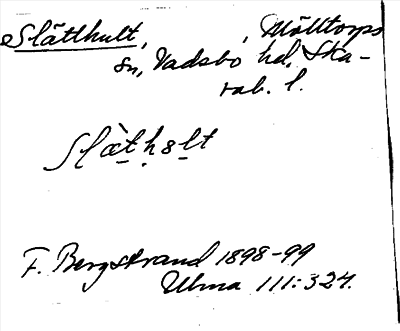 Slätthult, , Mölltorps
sn, Vadsbo hd, Ska-
rab. l.
Slæ̀tḥ8lt
F. Bergstrand 1898-99
Ulma 111:324.